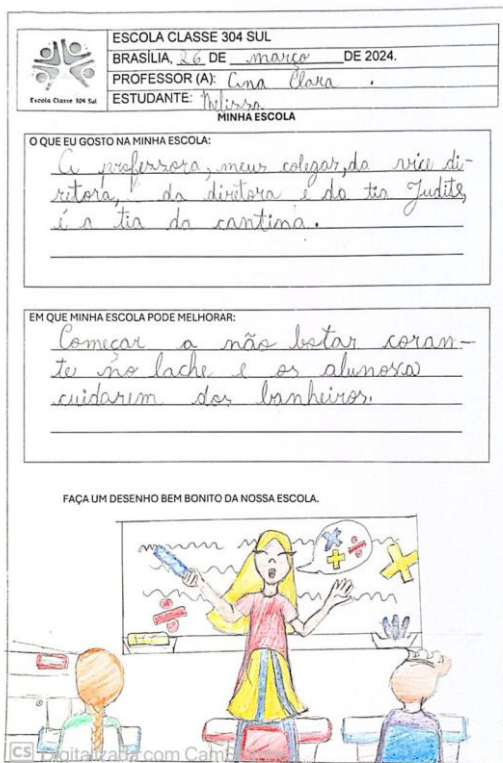 ESCOLA CLASSE 304 SUL
BRASÍLIA, 26 DE março DE 2024.
PROFESSOR (A): Ana Clara .
ESTUDANTE: Melissa
Escola Classe 304 Sul
MINHA ESCOLA
O QUE EU GOSTO NA MINHA ESCOLA:
A professora, meus colegas, da vice di-
retora, da diretora e da tia Judite,
é a tia da cantina.
EM QUE MINHA ESCOLA PODE MELHORAR:
Começar a não botar coran-
te no lache e os alunos
cuidarem dos banheiros.
FAÇA UM DESENHO BEM BONITO DA NOSSA ESCOLA.
CS Digitalizada com Cam